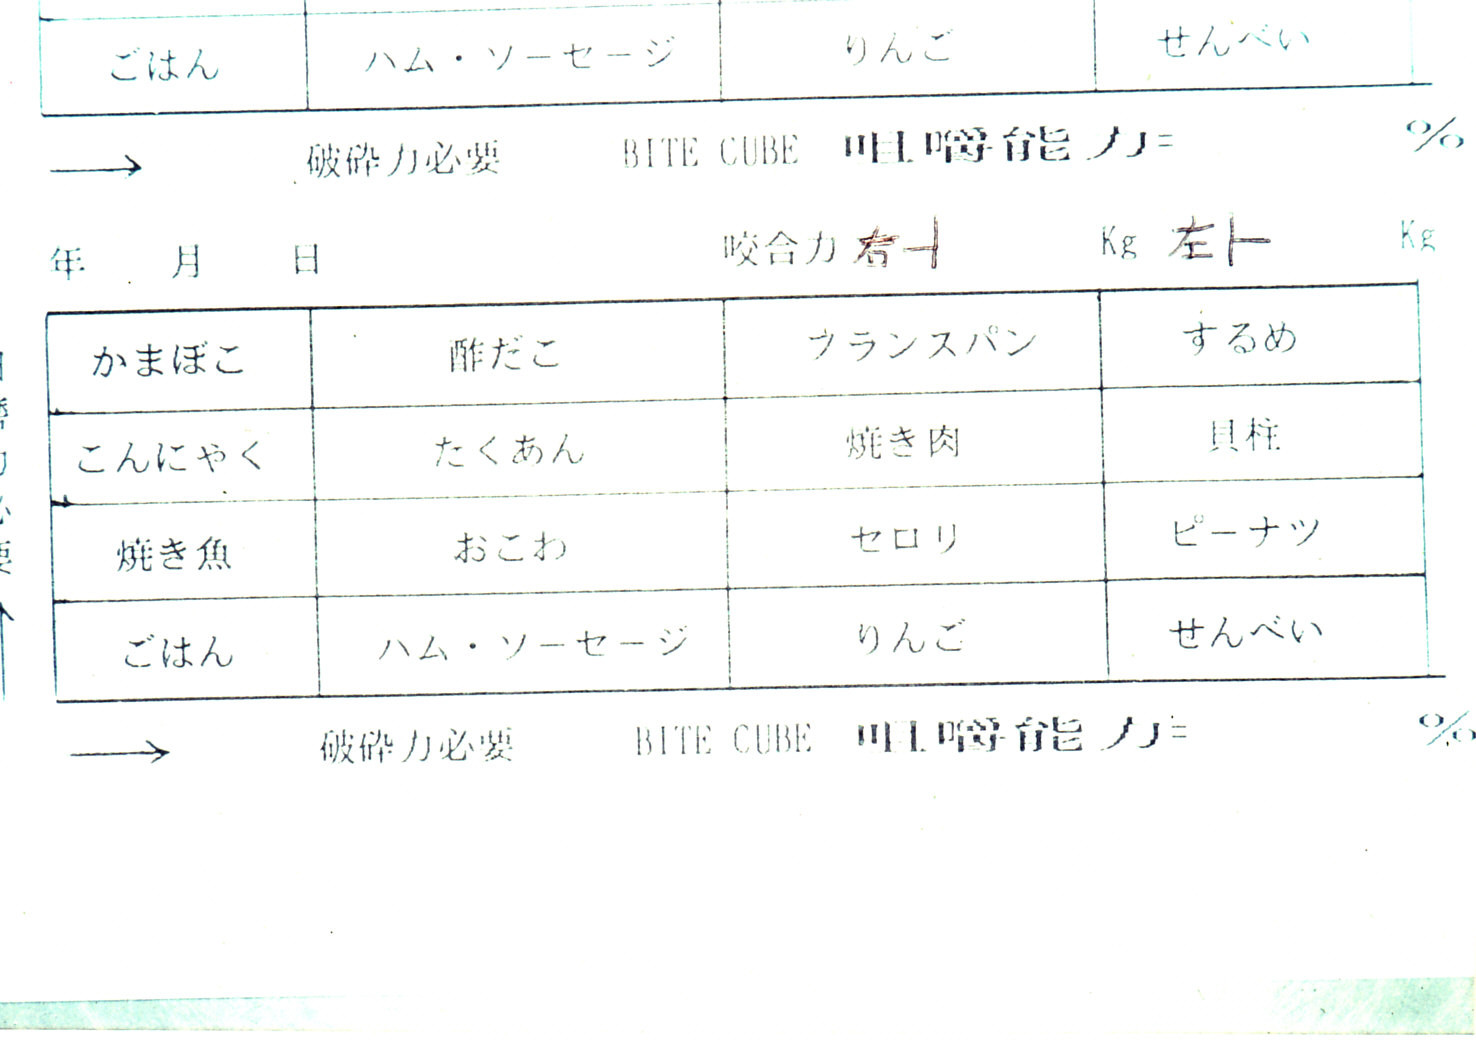 ごはん ハム・ソーセージ りんご せんべい
→ 破砕力必要 BITE CUBE 咀嚼能力= %
年 月 日 咬合力 右┤ Kg 左├ Kg
かまぼこ 酢だこ フランスパン するめ
こんにゃく たくあん 焼き肉 貝柱
焼き魚 おこわ セロリ ピーナツ
ごはん ハム・ソーセージ りんご せんべい
→ 破砕力必要 BITE CUBE 咀嚼能力= %